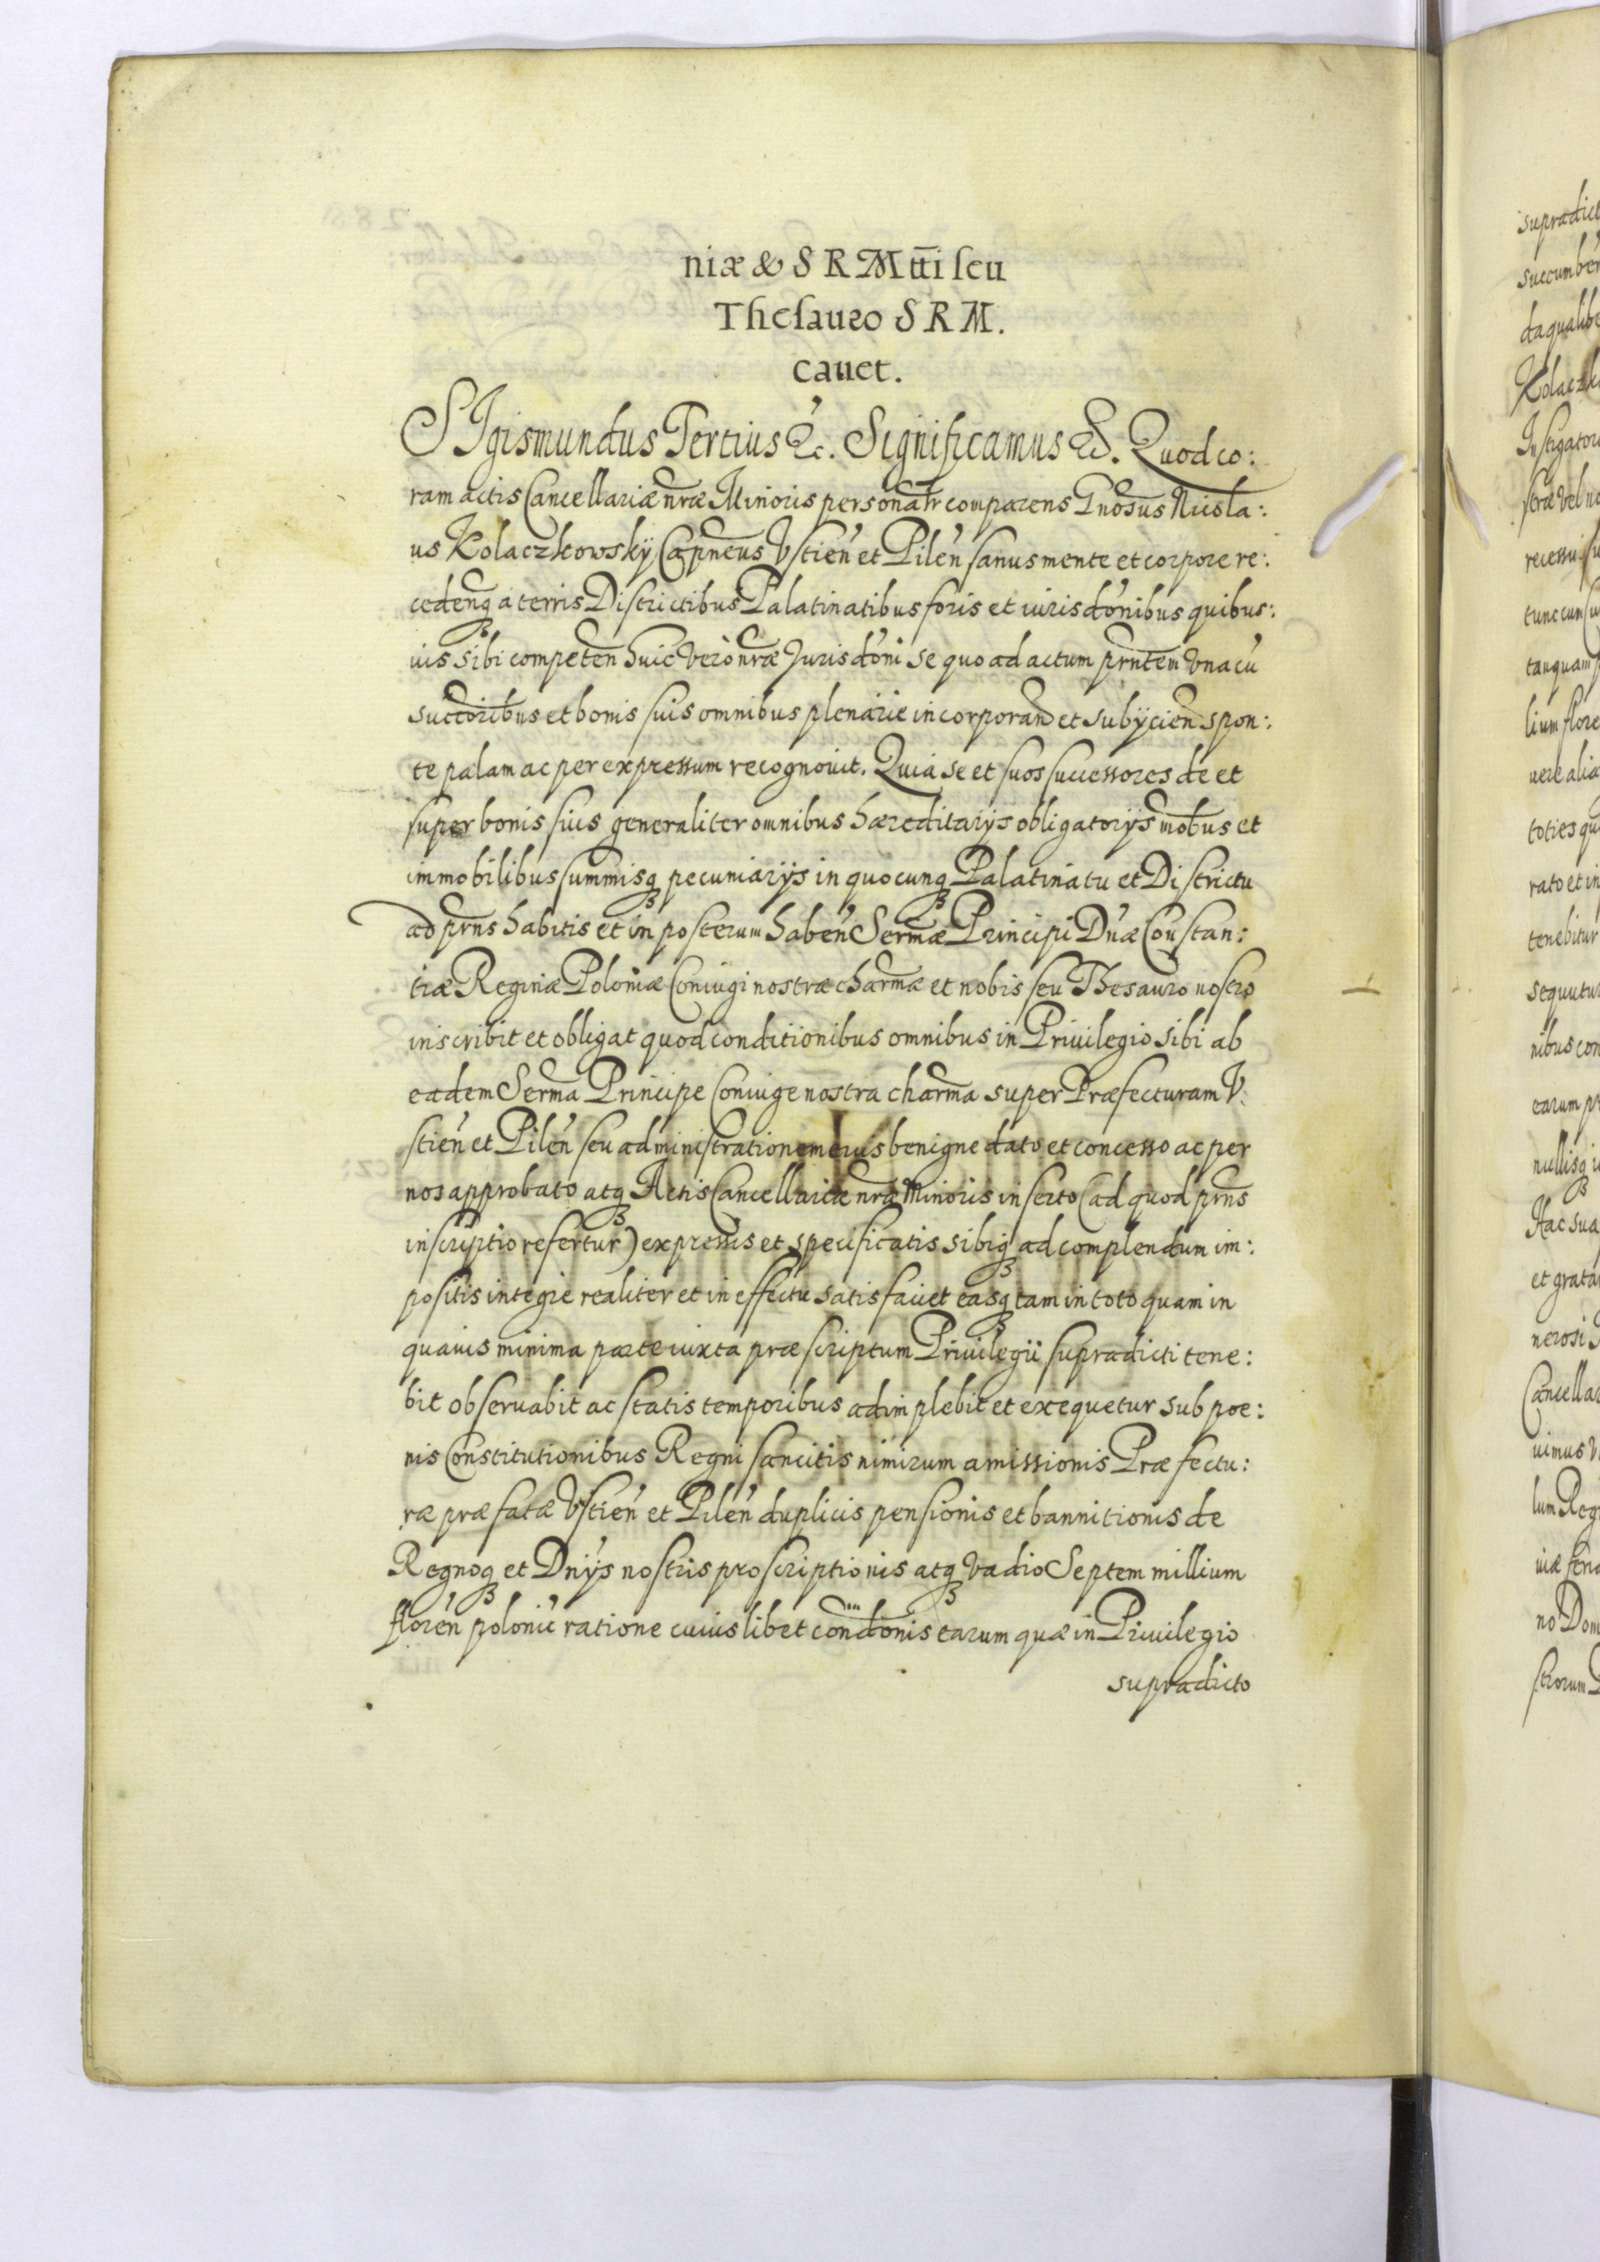 niæ & S R M tti seu
Thesauro S R M.
cauet.
SIgismundus Tertius &c. Significamus &c. Quod co:
ram actis Cancellariæ nræ Minoris personatr comparens Gnosus Nicola:
us Kolaczkowskÿ Capneus Vstien et Pilen sanus mente et corpore re:
cedensq a terris Districtibus Palatinatibus foris et iurisdonibus quibus:
uis sibi competen huic vero nræ Jurisdoni se quo ad actum prntem vna cu
succoribus et bonis suis omnibus plenarie incorporan et subÿcien spon:
te palam ac per expressum recognouit. Quia se et suos successores de et
super bonis suis generaliter omnibus hæreditarÿs obligatorÿs mobus et
immobilibus summisq pecuniarÿs in quocunq Palatinatu et Districtu
ad prns habitis et in posterum haben Sermæ Principi Dnæ Constan:
tiæ Reginæ Poloniæ Coniugi nostræ charmæ et nobis seu Thesauro nostro
inscribit et obligat quod conditionibus omnibus in Priuilegio sibi ab
eadem Serma Principe Coniuge nostra charma super Præfecturam V:
stien et Pilen seu administrationem eius benigne dato et concesso ac per
nos approbato atq Actis Cancellariæ nræ Minoris inserto (ad quod prns
inscriptio refertur) expressis et specificatis sibiq ad complendum im:
positis integre realiter et in effectu satisfaciet easq tam in toto quam in
quauis minima parte iuxta præscriptum Priuilegii supradicti tene:
bit obseruabit ac statis temporibus adimplebit et exequetur sub poe:
nis Constitutionibus Regni sancitis nimirum amissionis Præfectu:
ræ præfatæ Vstien et Pilen duplicis pensionis et bannitionis de
Regnoq et Dnÿs nostris proscriptionis atq vadio Septem millium
floren polonic ratione cuiuslibet condonis earum quæ in Priuilegio
supradicto